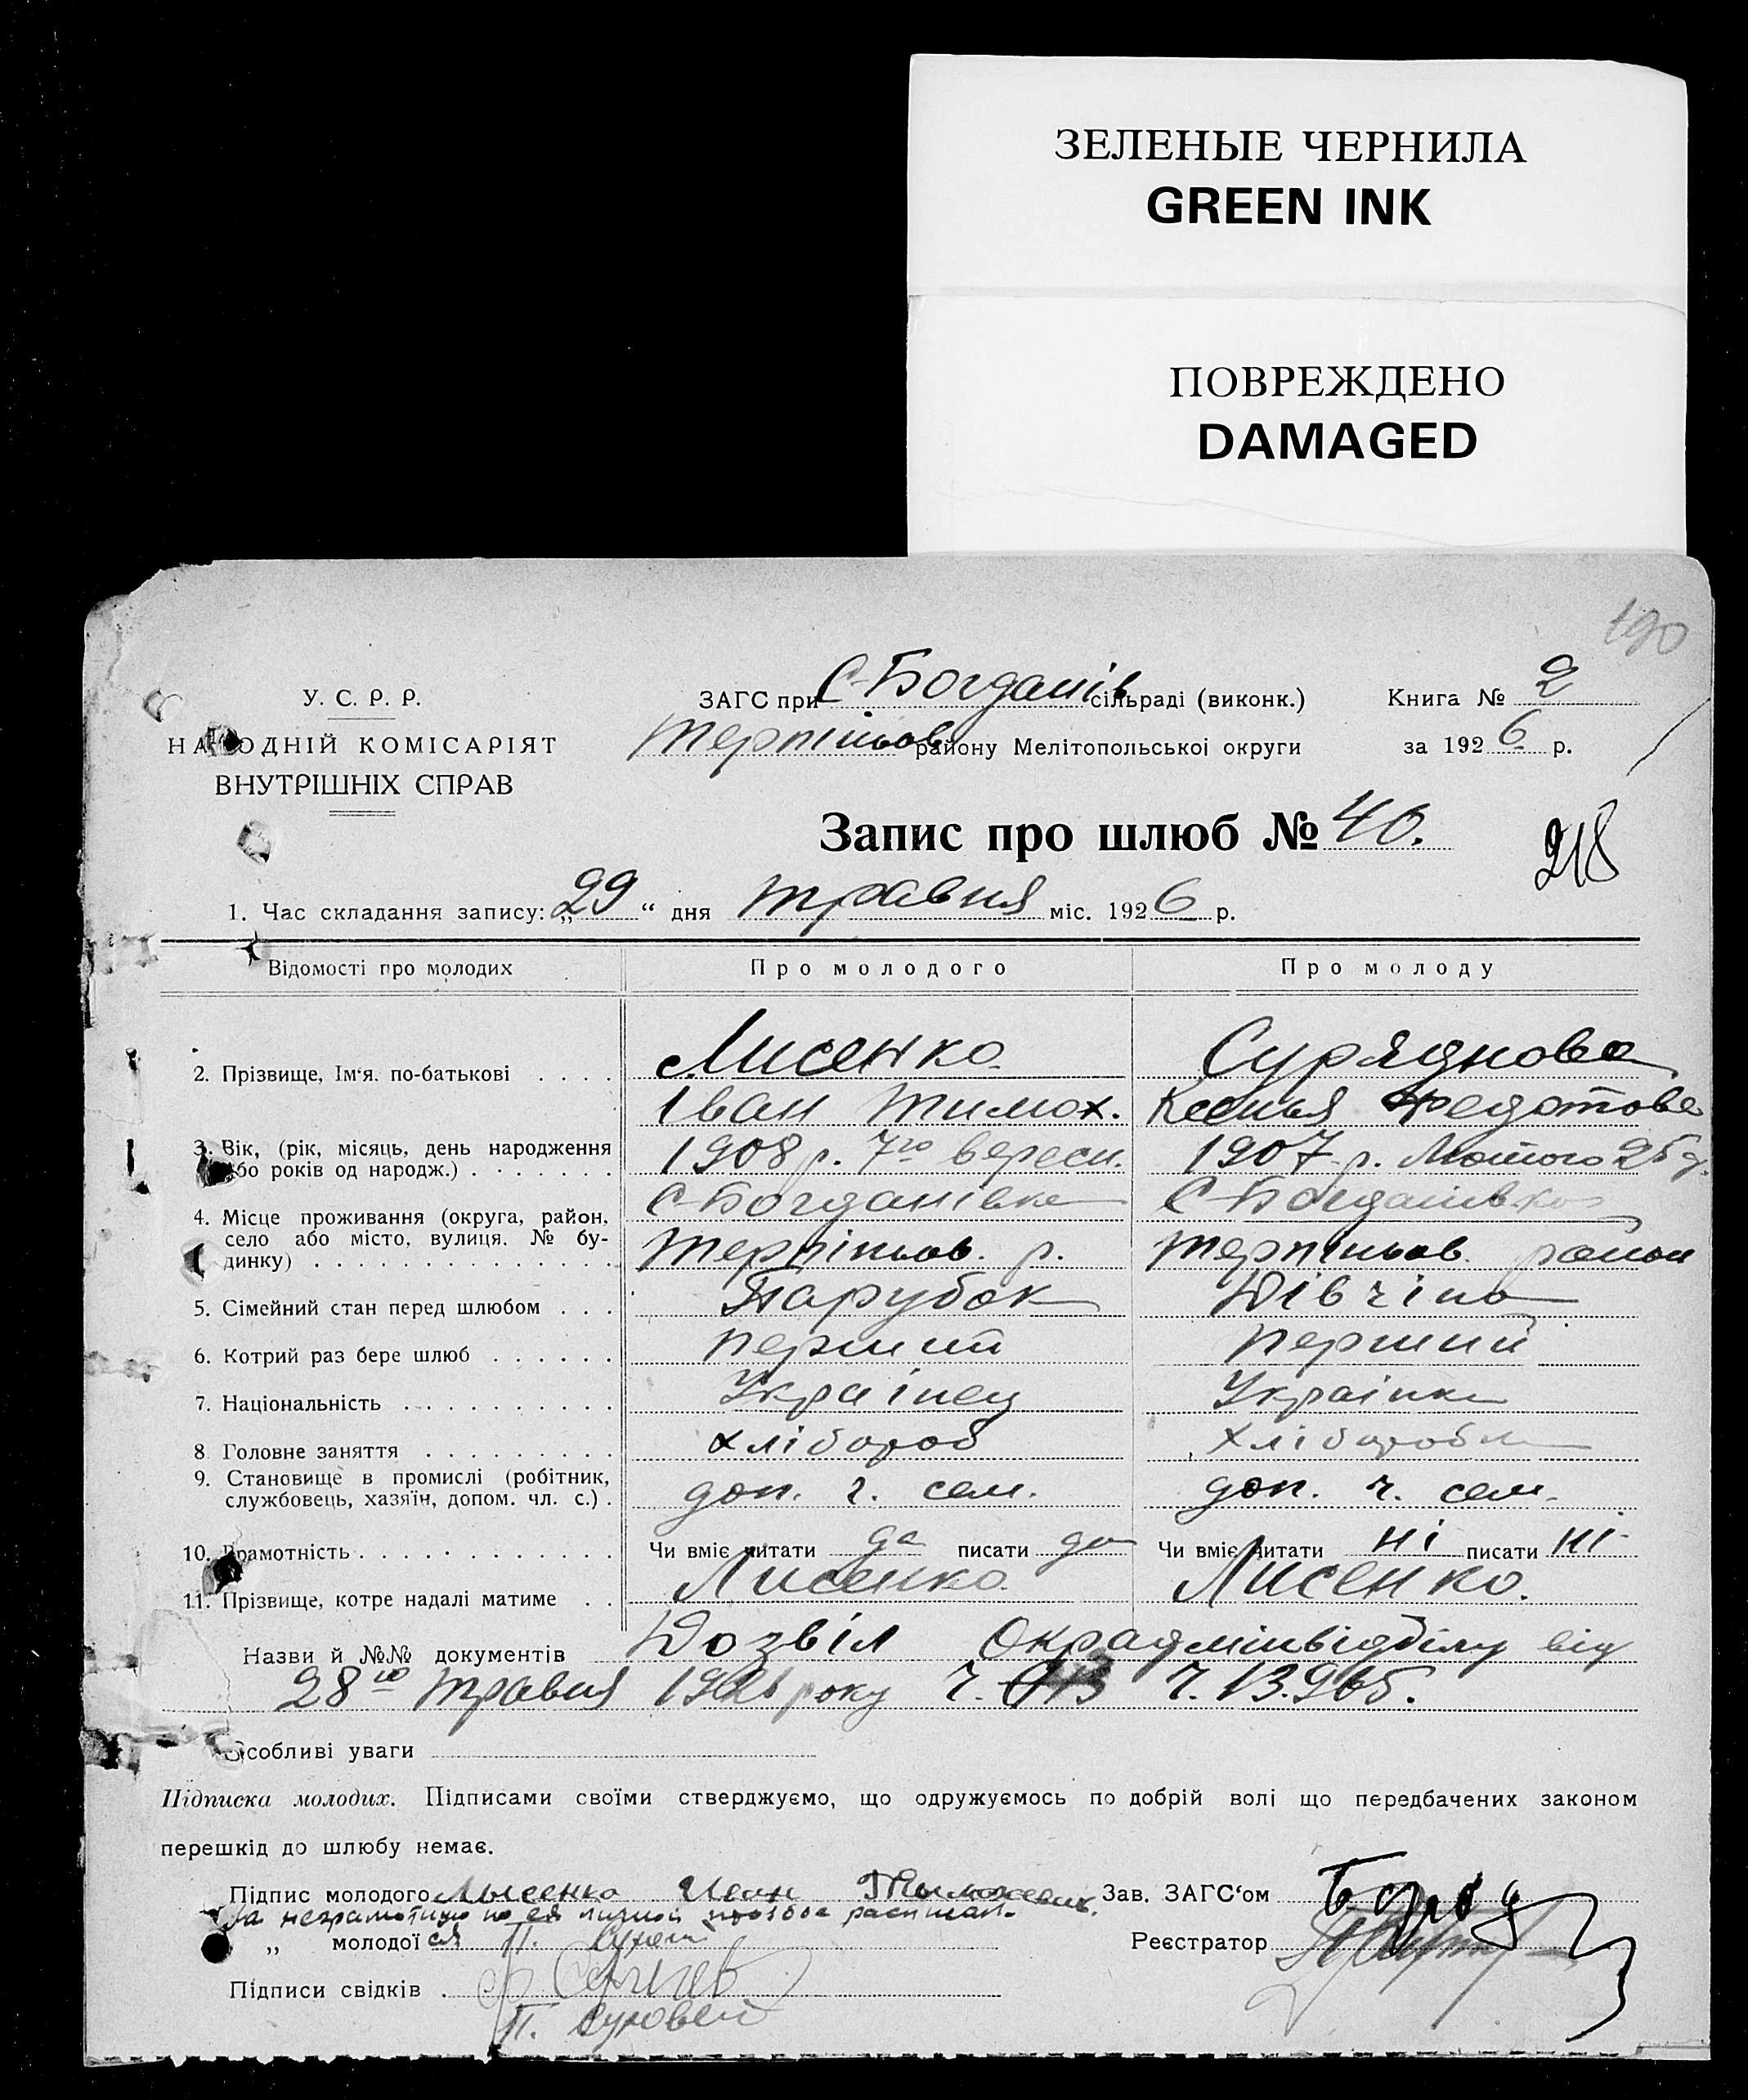 ЗЕЛЕНЫЕ ЧЕРНИЛА
GREEN INK
ПОВРЕЖДЕНО
DAMAGED
190
У. С. Р. Р.
НАРОДНІЙ КОМІСАРІЯТ
ВНУТРІШНІХ СПРАВ
ЗАГС при С-Богданів сільраді (виконк.) Книга № 2
Терпіньов району Мелітопольської округи за 1926 р.
Запис про шлюб № 40.
218
1. Час складання запису: „29“ дня травня міс. 1926 р.
Відомості про молодих Про молодого Про молоду
2. Прізвище, Ім'я, по-батькові . . . . Лисенко Суряднова
Іван Тимох. Ксенья Федотова
3. Вік, (рік, місяць, день народження або років од народж.) 1908 р. 7го вересн. 1907 р. Лютого 25 д.
4. Місце проживання (округа, район, село або місто, вулиця, № будинку) С-Богданівка С-Богданівка
Терпіньов. р. Терпіньов. район
5. Сімейний стан перед шлюбом . . . Парубок Дівчина
6. Котрий раз бере шлюб . . . . . . перший перший
7. Національність . . . . . . . . . . Українец Українка
8 Головне заняття . . . . . . . . . хлібороб хліборобка
9. Становище в промислі (робітник, службовець, хазяїн, допом. чл. с.) . доп. ч. сем. доп. ч. сем.
10. Грамотність . . . . . . . . . . . . Чи вміє читати да писати да Чи вміє читати ні писати ні
11. Прізвище, котре надалі матиме . . Лисенко Лисенко.
Назви й №№ документів Дозвіл Окрадмінвідділу від
28го травня 1926 року ч. 13.965.
Особливі уваги
Підписка молодих. Підписами своїми стверджуємо, що одружуємось по добрій волі що передбачених законом
перешкід до шлюбу немає.
Підпис молодого Лысенко Иван Зав. ЗАГС'ом
За неграмотную по ея личной прозбое расписал-
„ молодої ся П. Реєстратор
Підписи свідків .
П. Суховей